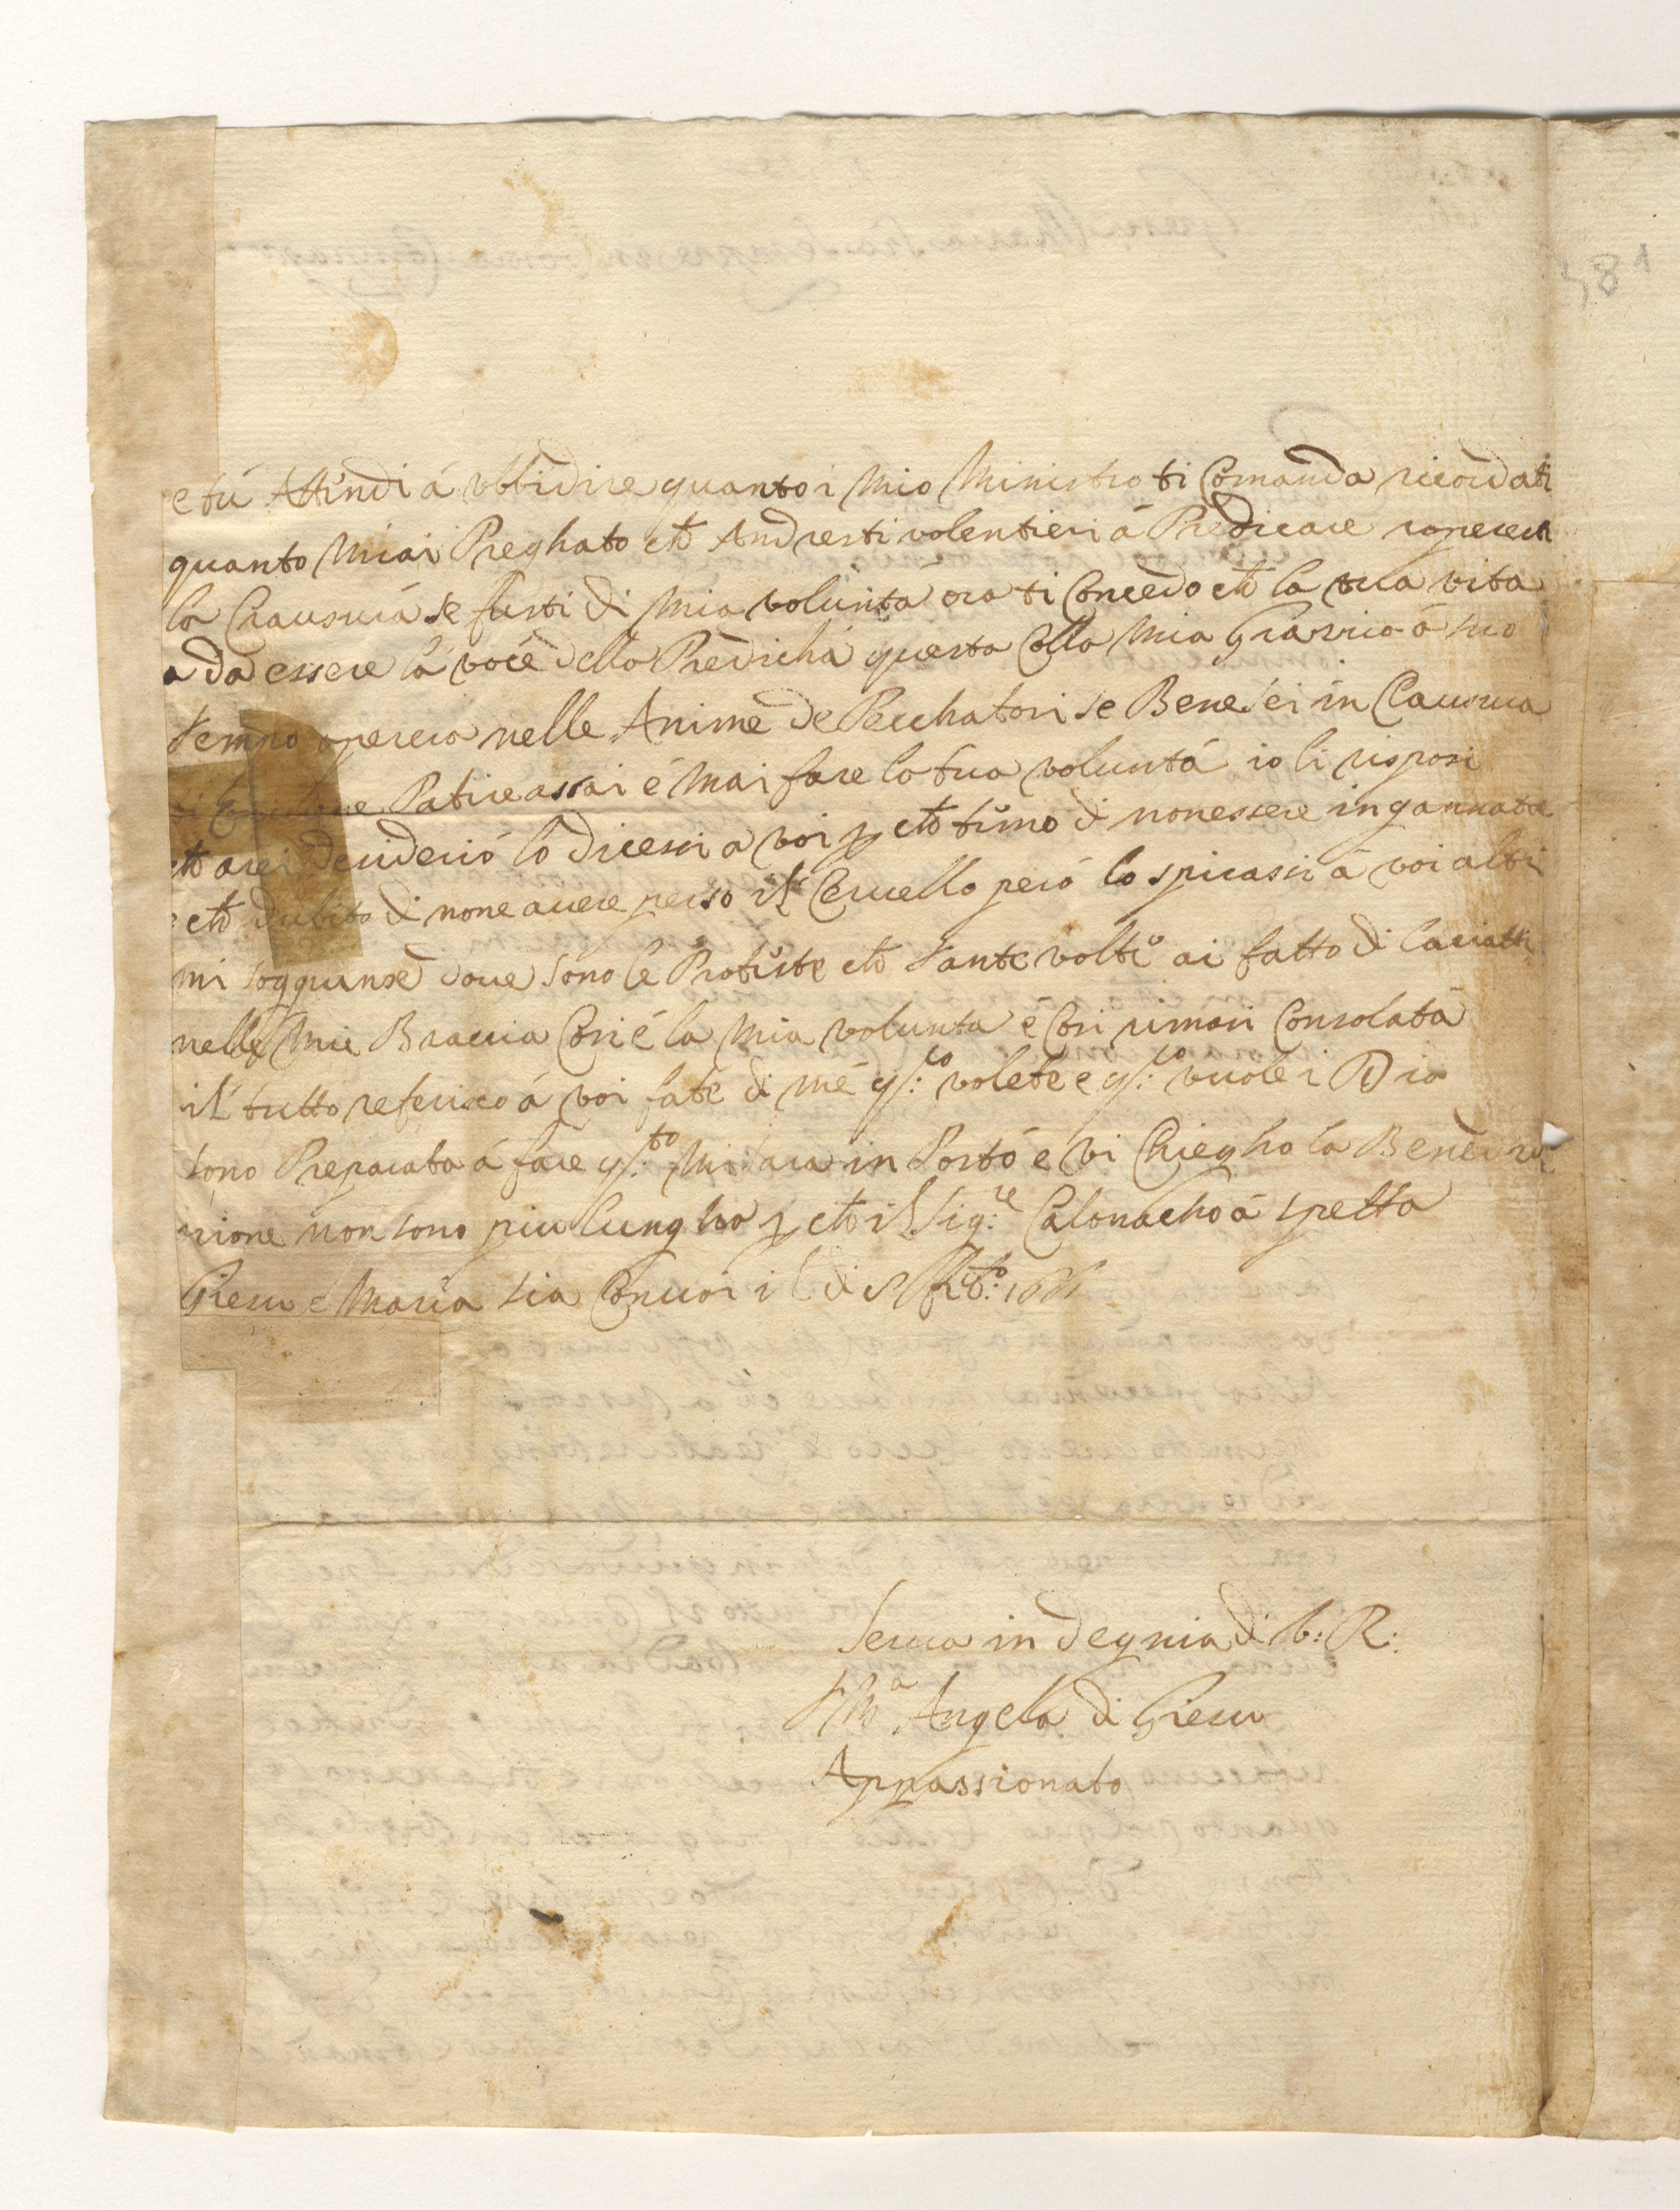 e tú Attindi á ubbidire quanto i Mio Ministro ti Comanda ricordati
quanto Miai Preghato che Andresti volentieri á Predicare roperesti
la Crausura se fusti di Mia volunta ora ti Concedo che la tua vita
a da essere la voce della Predicha questa Colla Mia Grazzia á suo
tempo operera nelle Anime de Pecchatori se Bene sei in Clausura
ti Patire assai é Mai fare la tua voluntá io li risposi
che arei desiderio lo dicessi a voi p che timo di non essere ingannata
e che dubito di none avere perso il Cervello peró lo spicassi á voi altri
mi soggiunse dove sono le Protiste che tante volte ai fatto di Lasciatti
nelle Mie Braccia Cosi é la Mia volunta é Cosi rimasi Consolata
il tutto referisco á voi fate di mé q:to volete e q:to vuole i Dio
sono Preparata á fare q:to Mi sara in Posto é vi Chiegho la Benedi
zione non sono piu lungha p che il Sig:re Calonacho á spetta
Giesu e Maria sia Con voi il di
Serva in degnia di V: R:
S M.a Angela di Giesu
Appassionato
381